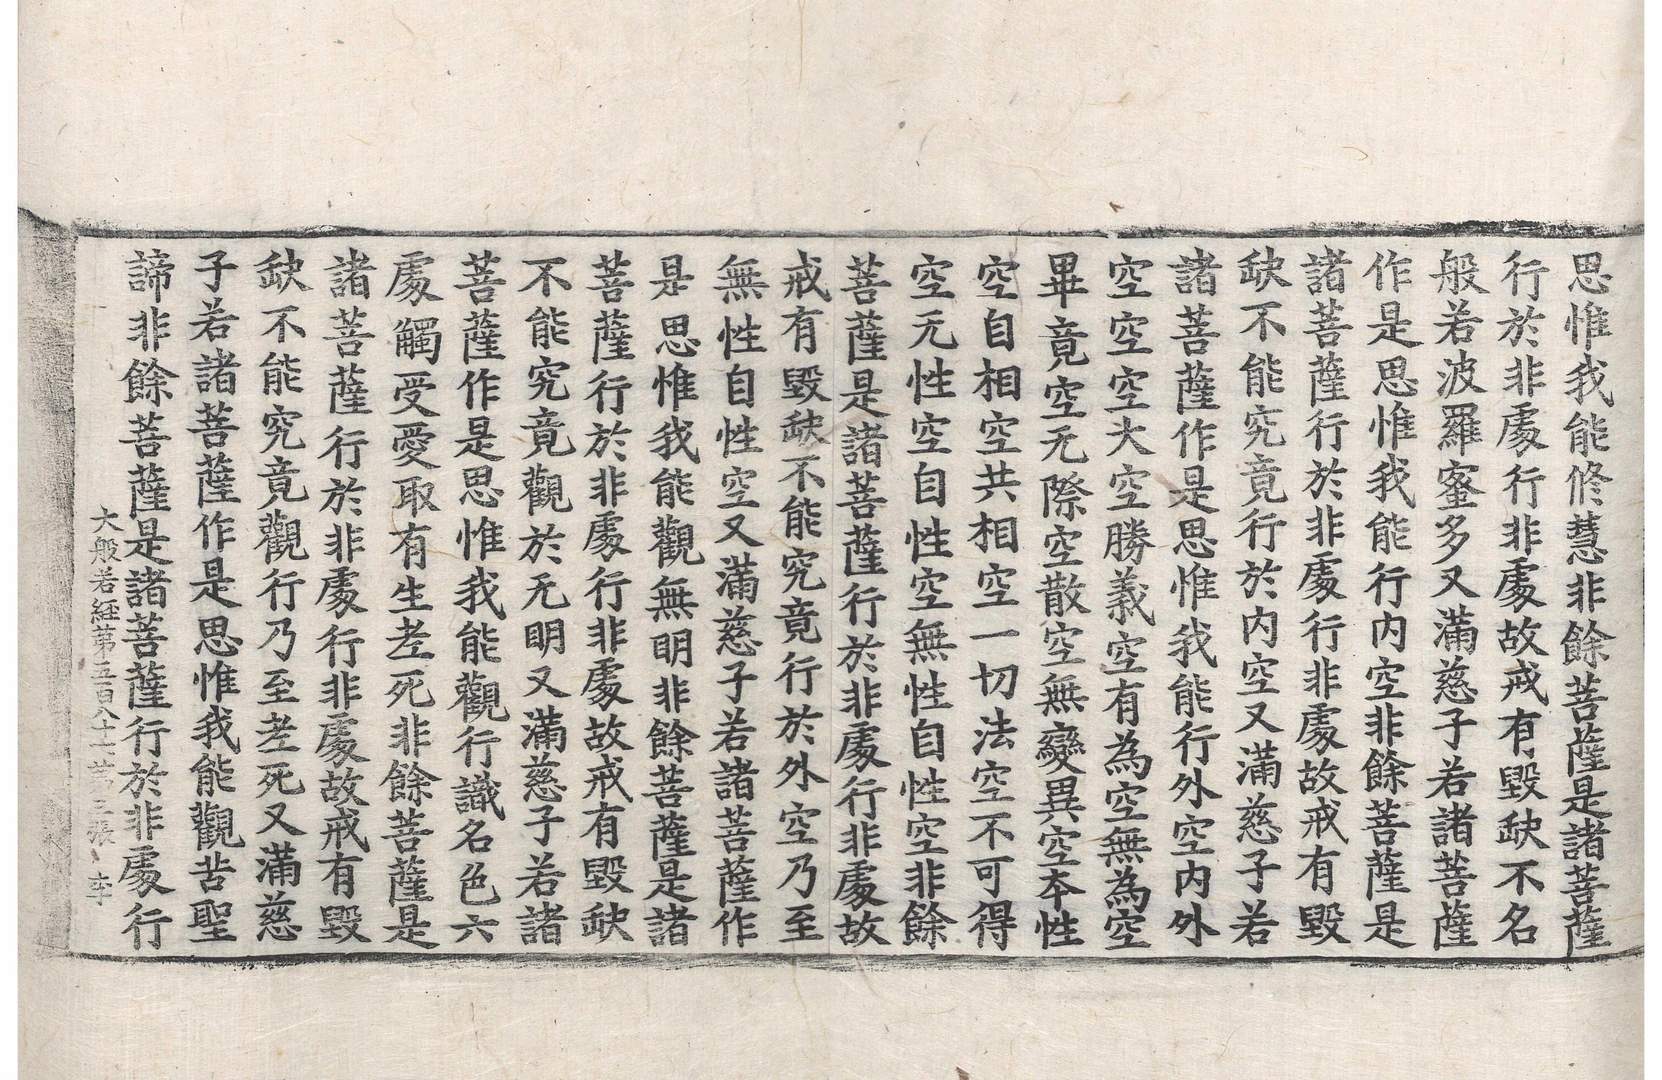 思惟我能修慧非餘菩薩是諸菩薩
行於非處行非處故戒有毀缺不名
般若波羅蜜多又滿慈子若諸菩薩
作是思惟我能行内空非餘菩薩是
諸菩薩行於非處行非處故戒有毀
缺不能究竟行於内空又滿慈子若
諸菩薩作是思惟我能行外空内外
空空空大空勝義空有為空無為空
畢竟空无際空散空無變異空本性
空自相空共相空一切法空不可得
空无性空自性空無性自性空非餘
菩薩是諸菩薩行於非處行非處故
戒有毀缺不能究竟行於外空乃至
無性自性空又滿慈子若諸菩薩作
是思惟我能觀無明非餘菩薩是諸
菩薩行於非處行非處故戒有毀缺
不能究竟觀於无明又滿慈子若諸
菩薩作是思惟我能觀行識名色六
處觸受愛取有生老死非餘菩薩是
諸菩薩行於非處行非處故戒有毀
缺不能究竟觀行乃至老死又滿慈
子若諸菩薩作是思惟我能觀苦聖
諦非餘菩薩是諸菩薩行於非處行
大般若經第五百八十七第三張 李